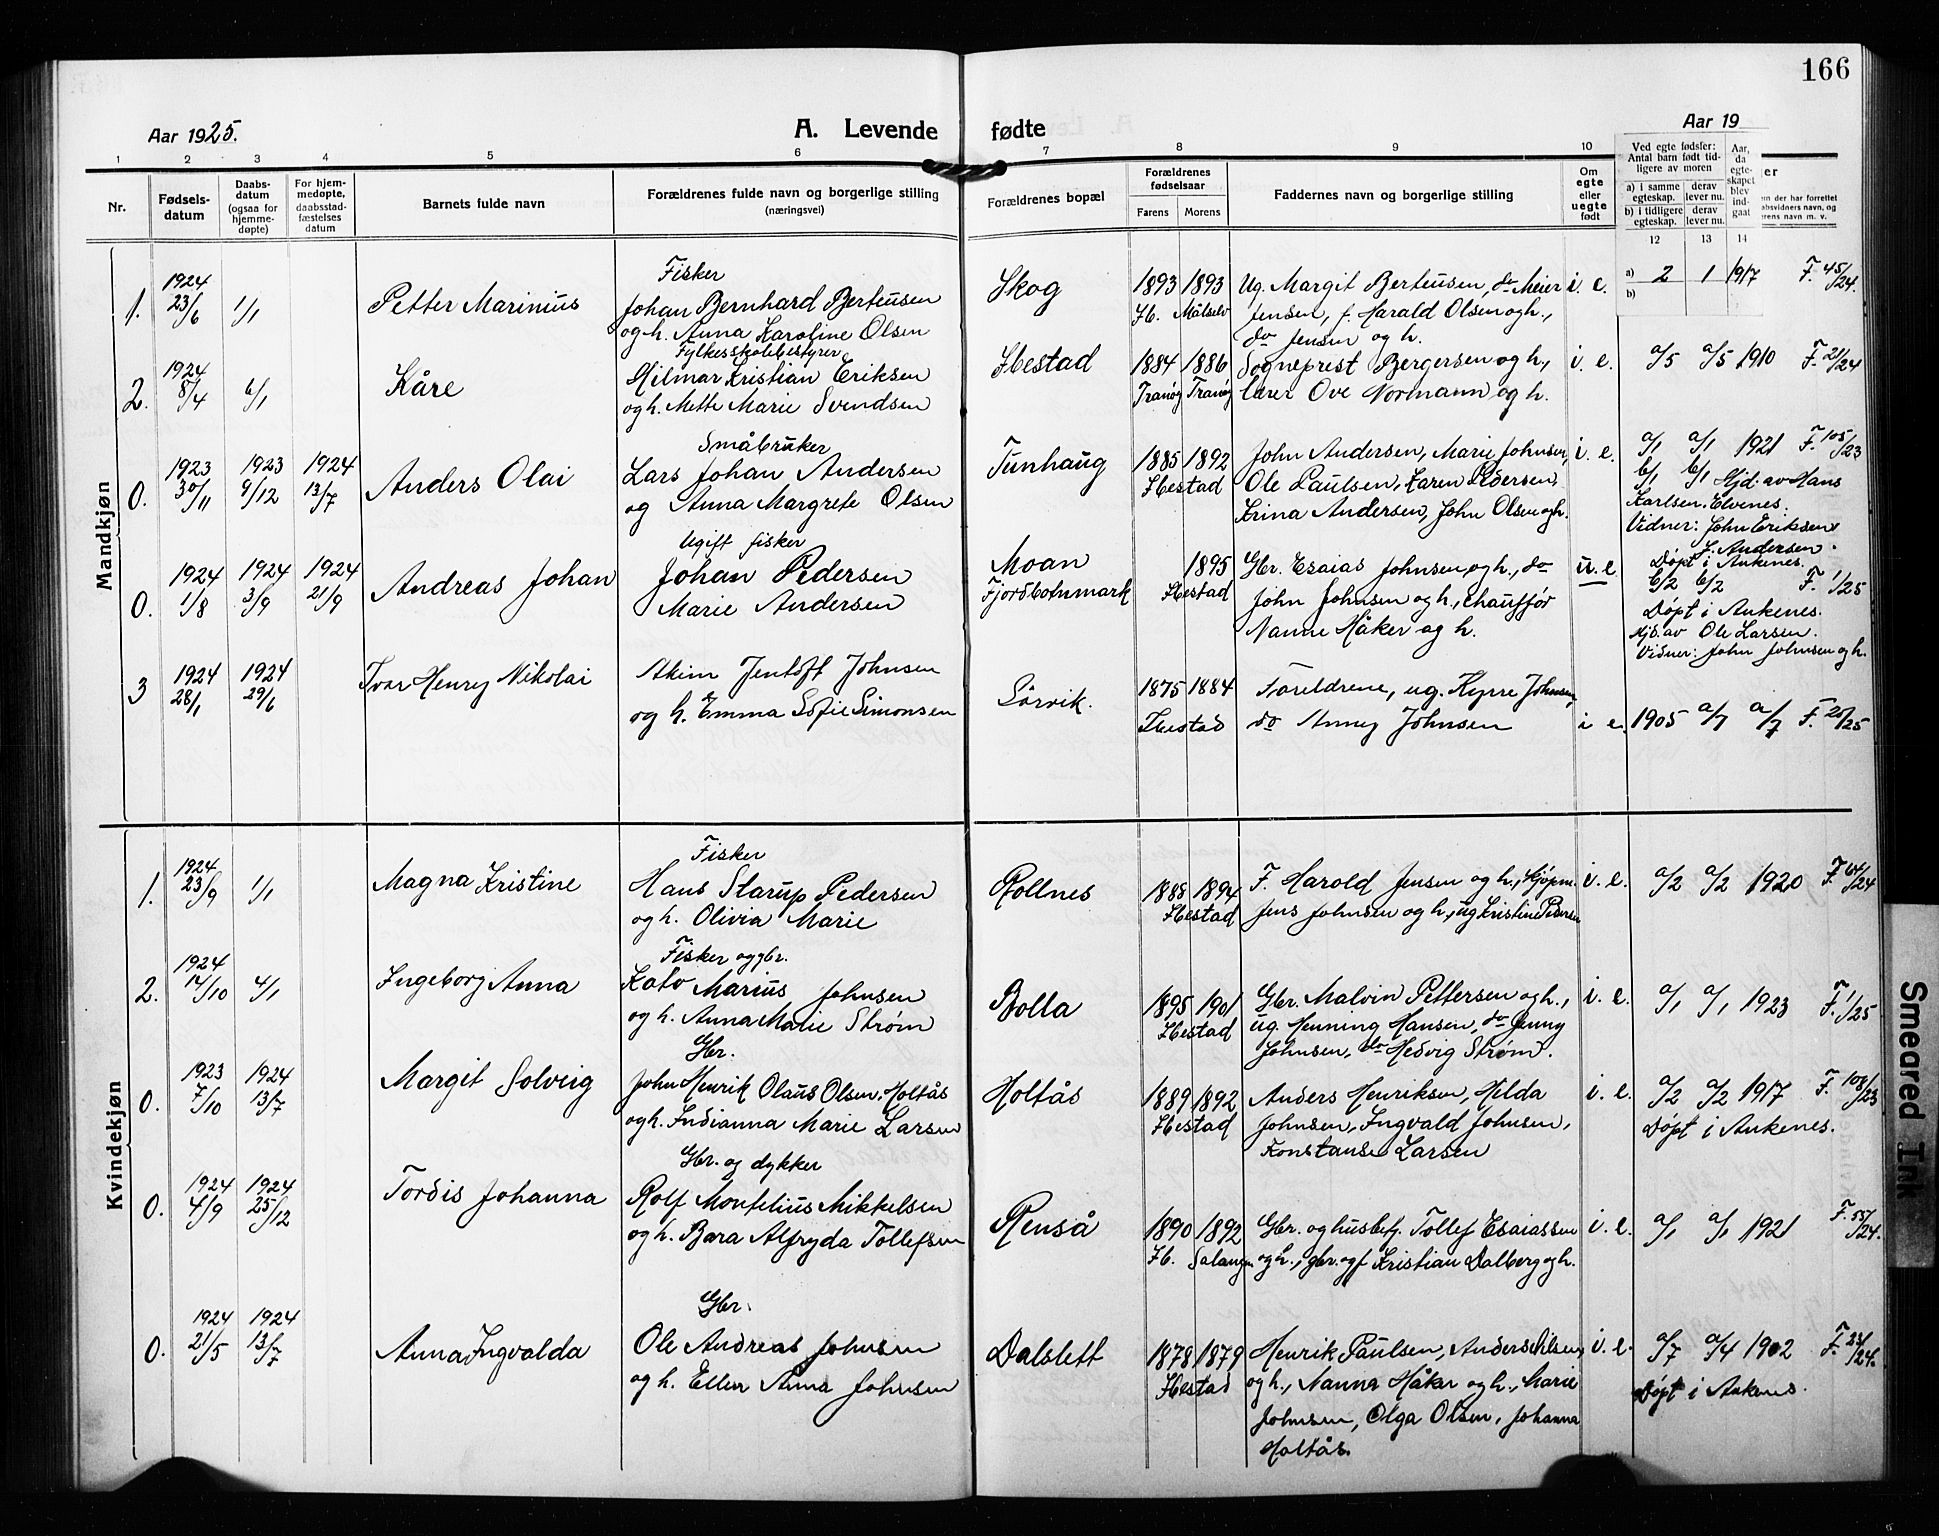 166
Aar 1925.
A. Levende fødte
Aar 19
1 2 3 4 5 6 7 8 9 10
Nr.
Fødsels-
datum
Daabs-
datum
(ogsaa for
hjemme-
døpte)
For hjem-
medøpte,
daabsstad-
fæstelses
datum
Barnets fulde navn
Forældrenes fulde navn og borgerlige stilling
(næringsvei)
Forældrenes bopæl
Forældrenes
fødselsaar
Farens Morens
Faddernes navn og borgerlige stilling
Om
egte
eller
uegte
født
Ved egte fødsler:
Antal barn født tid-
ligere av moren
a) i samme
egteskap.
derav
lever nu.
b) i tidligere
egteskap.
derav
lever nu.
Aar,
da
egte-
skapet
blev
ind-
gaat
12 13 14
er
n der har forrettet
absvidners navn, og
erens navn m. v.
Mandkjøn
1. 1924 23/6 1/1 Petter Marinius
Fisker
Johan Bernhard Berteusen
og h. Anna Karoline Olsen
Skog
1893 1893
Ib. Målselv
Ug. Margit Berteusen, do Meier
Jensen, f. Harald Olsen og h.,
do Jensen og h.
i. e.
a) 2 1 1917 F. 45/24.
b)
2. 1924 8/4 6/1 Kåre
Fylkesskolebestyrer
Hilmar Kristian Eriksen
og h. Mette Marie Svendsen
Ibestad
1884 1886
Tranøy Tranøy
Sogneprest Bergersen og h.,
lærer Ove Normann og h.
i. e.
a/5 a/5 1910 F. 21/24
0. 1923 30/11 1923 9/12 1924 13/7 Anders Olai
Småbruker
Lars Johan Andersen
og Anna Margrete Olsen
Tunhaug
1885 1892
Ibestad
John Andersen, Marie Johnsen,
Ole Paulsen, Karen Pedersen,
Krina Andersen, John Olsen og h.
i. e.
a/1 a/1 1921 F. 105/23
b/1 b/1 Hjd. av Hans
Karlsen. Elvenes.
Vidner: John Eriksen,
J. Andersen.
Døpt i Ankenes.
0. 1924 1/8 1924 3/9 1924 21/9 Andreas Johan
Ugift fisker
Johan Pedersen
Marie Andersen
Moan
Fjordbotnmark
1895
Ibestad
Gbr. Esaias Johnsen og h., do
John Johnsen og h., chauffør
Nanne Håker og h.
u. e.
b/2 b/2 F. 1/25
Døpt i Ankenes.
Hjd. av Ole Larsen.
Vidner: John Johnsen og h.
3 1924 28/1 1924 29/6 Ivar Henry Nikolai
Akim Jentoft Johnsen
og h. Emma Sofie Simonsen
Sørvik.
1875 1884
Ibestad
Foreldrene, ug. Kyrre Johnsen,
do Anny Johnsen
i e.
1905 a/7 a/7 F. 20/25
Kvindekjøn
1. 1924 23/9 1/1 Magna Kristine
Fisker
Hans Starup Pedersen
og h. Olivia Marie
Rollnes
1888 1894
Ibestad
F. Harold Jensen og h., kjøpm.
Jens Johnsen og h., ug Kristine Pedersen
i. e.
a/2 a/2 1920 F. 64/24
2. 1924 14/10 4/1 Ingeborg Anna
Fisker og gbr.
Kato Marius Johnsen
og h. Anna Marie Strøm
Bolla
1895 1901
Ibestad
Gbr. Malvin Pettersen og h.,
ug. Henning Hansen, do Jenny
Johnsen, do Hedvig Strøm.
i. e.
a/1 a/1 1923 F. 1/25
0. 1923 7/10 1924 13/7 Margit Solveig
Gbr.
John Henrik Olaus Olsen, Holtås
og h. Indianna Marie Larsen
Holtås
1889 1892
Ibestad
Anders Henriksen, Hilda
Johnsen, Ingvald Johnsen,
Konstanse Larsen
i. e.
a/2 a/2 1917 F. 108/23
Døpt i Ankenes.
0. 1924 4/9 1924 25/12 Tordis Johanna
Gbr. og dykker
Rolf Montelius Mikkelsen
og h. Bara Alfryda Tollefsen
Renså
1890 1892
Ib. Salangen
Gbr. og husbetj. Tollef Esaiassen
og h., gbr. og f Kristian Dalberg og h.
i. e.
a/1 a/1 1921 F. 55/24.
0. 1924 21/5 1924 13/7 Anna Ingvalda
Gbr.
Ole Andreas Johnsen
og h. Ellen Anna Johnsen
Dalslett
1878 1879
Ibestad
Henrik Paulsen, Anders Olsen,
og h., Nanna Håker og h., Marie
Johnsen, Olga Olsen, Johanna
Holtås.
i. e.
a/7 a/4 1902 F. 23/24.
Døpt i Ankenes.
Smeared Ink